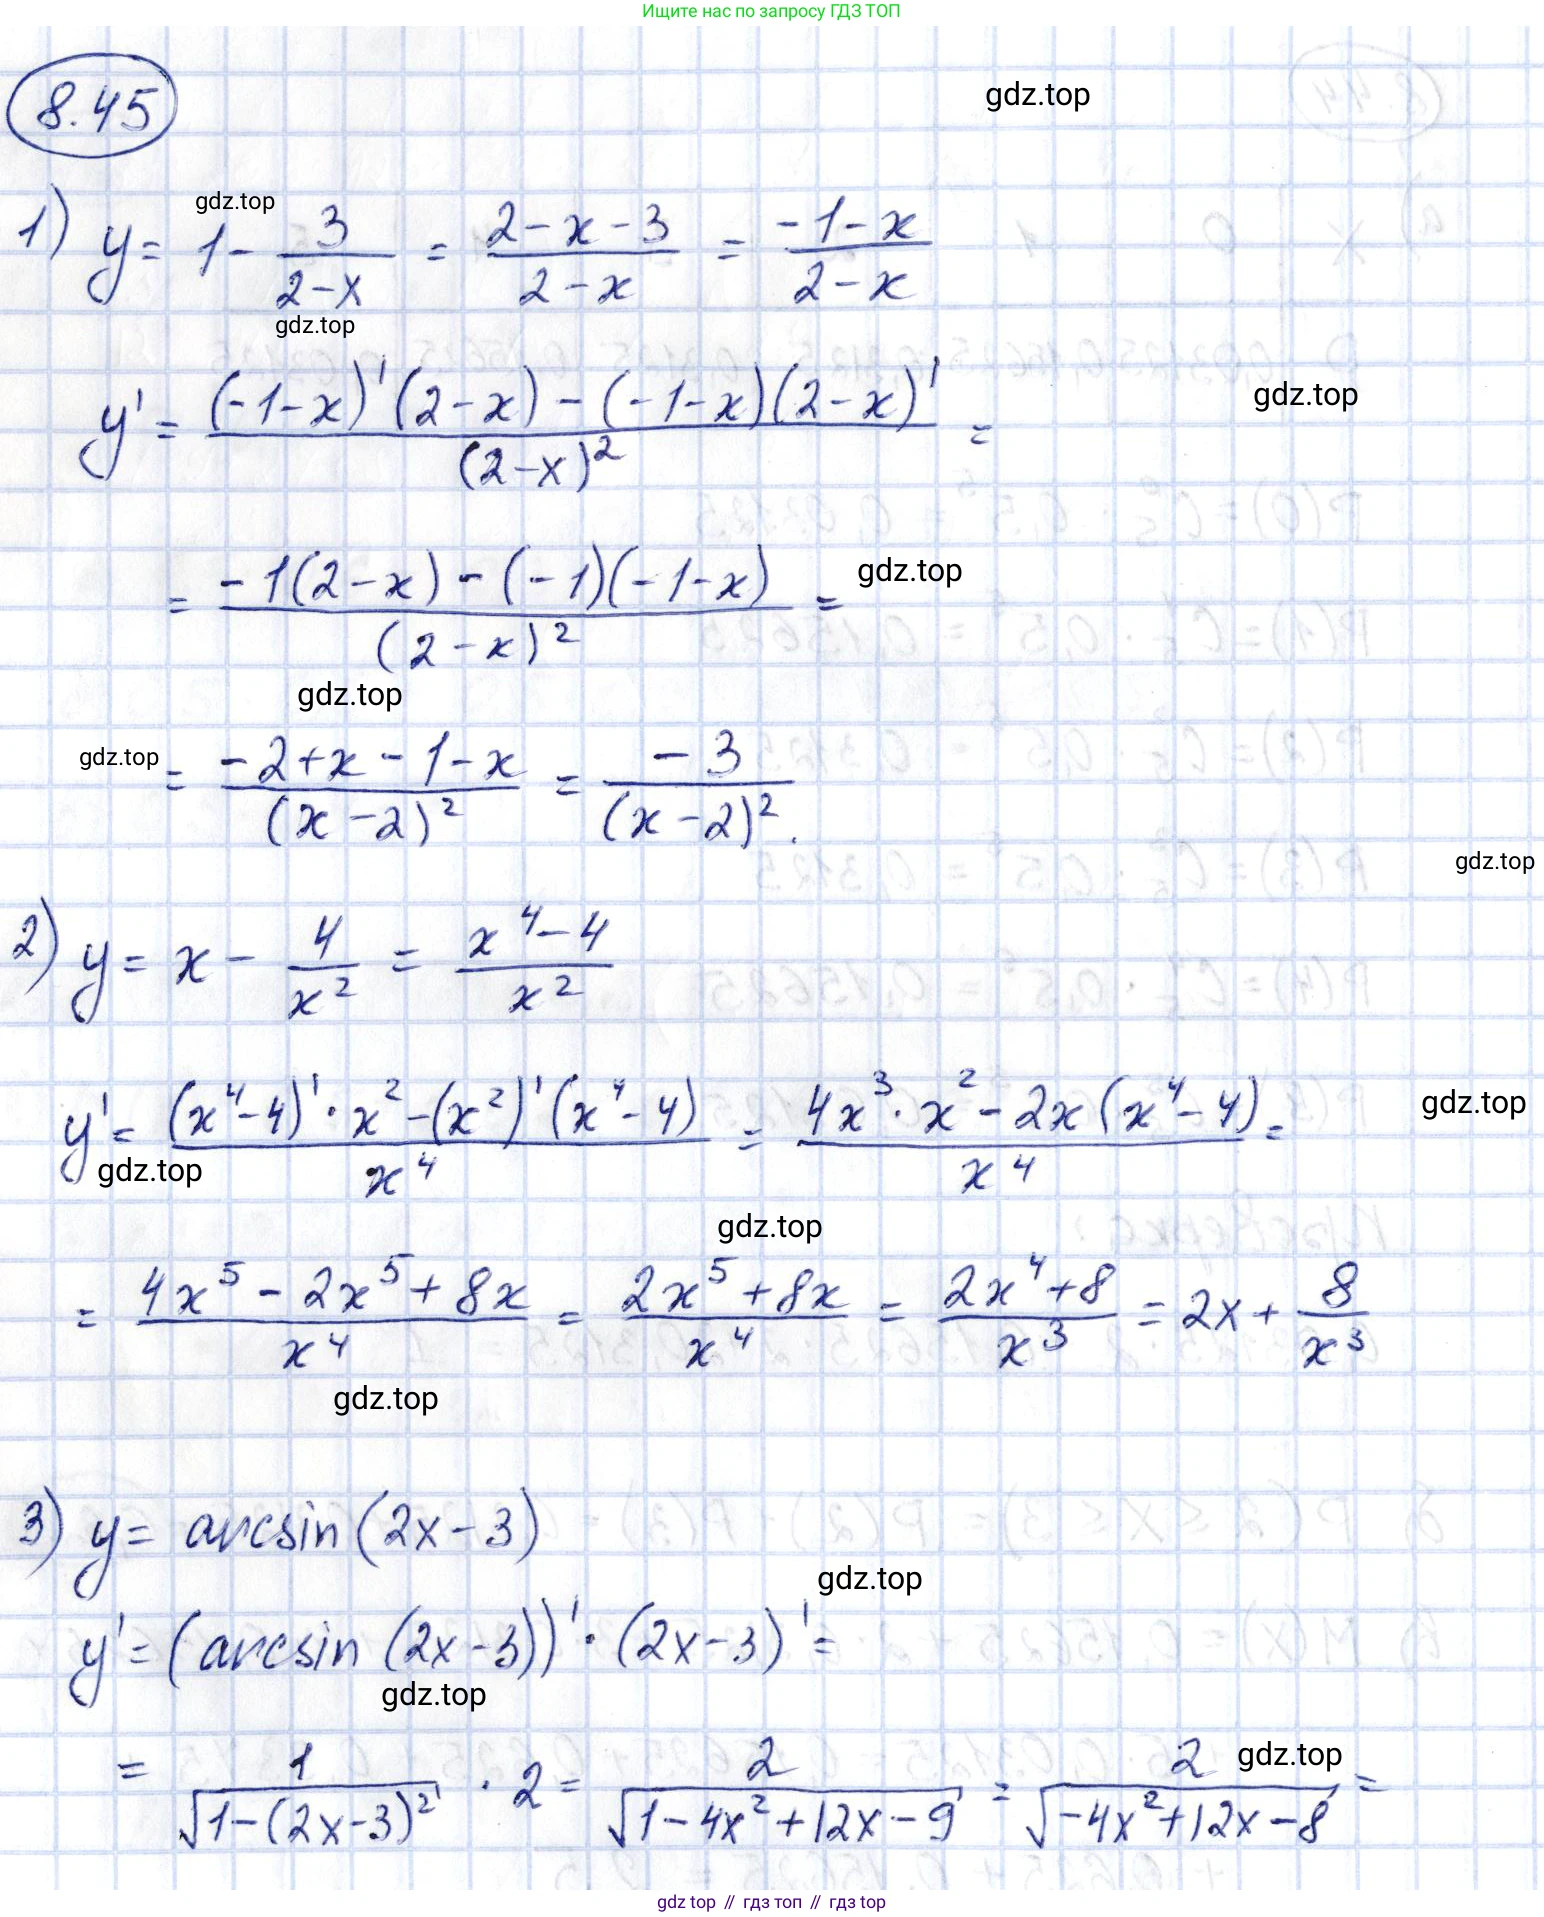 Ищите нас по запросу ГДЗ ТОП
8.45
gdz.top
1) y = 1 - 3/(2-x) = (2-x-3)/(2-x) = (-1-x)/(2-x)
gdz.top
gdz.top
y' = ((-1-x)'(2-x) - (-1-x)(2-x)')/(2-x)² =
gdz.top
= (-1(2-x) - (-1)(-1-x))/(2-x)² =
gdz.top
gdz.top
= (-2+x-1-x)/(x-2)² = -3/(x-2)².
gdz.top
gdz.top
2) y = x - 4/x² = (x⁴-4)/x²
y' = ((x⁴-4)'·x² - (x²)'(x⁴-4))/x⁴ = (4x³·x² - 2x(x⁴-4))/x⁴ =
gdz.top
gdz.top
gdz.top
= (4x⁵ - 2x⁵ + 8x)/x⁴ = (2x⁵+8x)/x⁴ = (2x⁴+8)/x³ = 2x + 8/x³
gdz.top
3) y = arcsin(2x-3)
gdz.top
y' = (arcsin(2x-3))'·(2x-3)' =
gdz.top
= 1/√(1-(2x-3)²) · 2 = 2/√(1-4x²+12x-9) = 2/√(-4x²+12x-8) =
gdz.top
gdz top // гдз топ // гдз.top